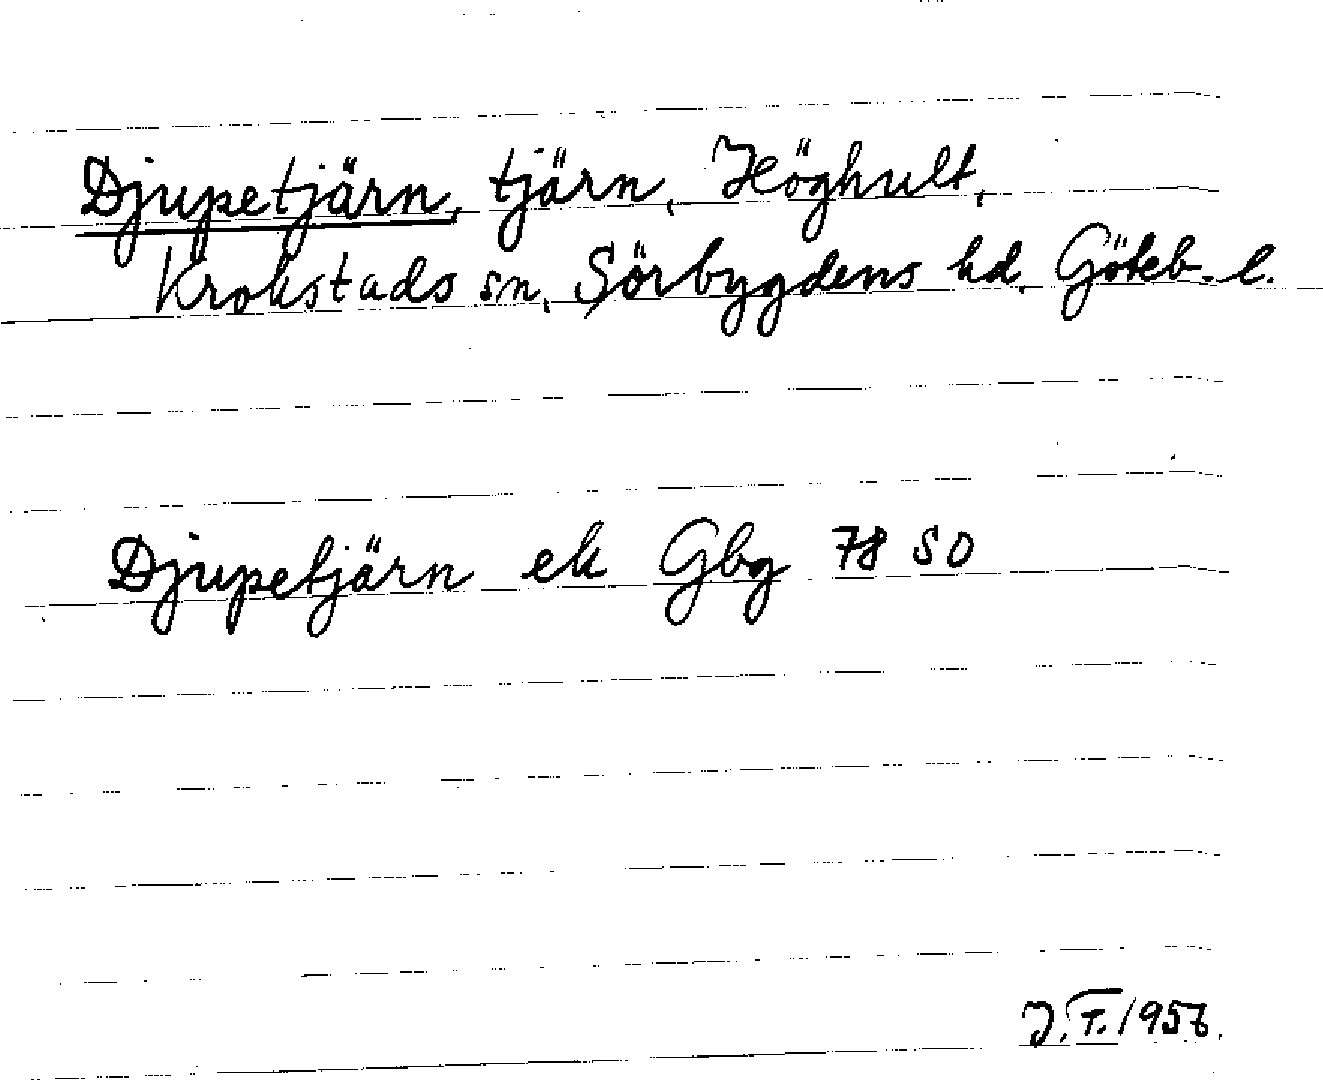 Djupetjärn, tjärn, Höghult,
Krokstads sn, Sörbygdens hd, Göteb. l.
Djupetjärn ek Gbg 78 SO
J.T. 1956.